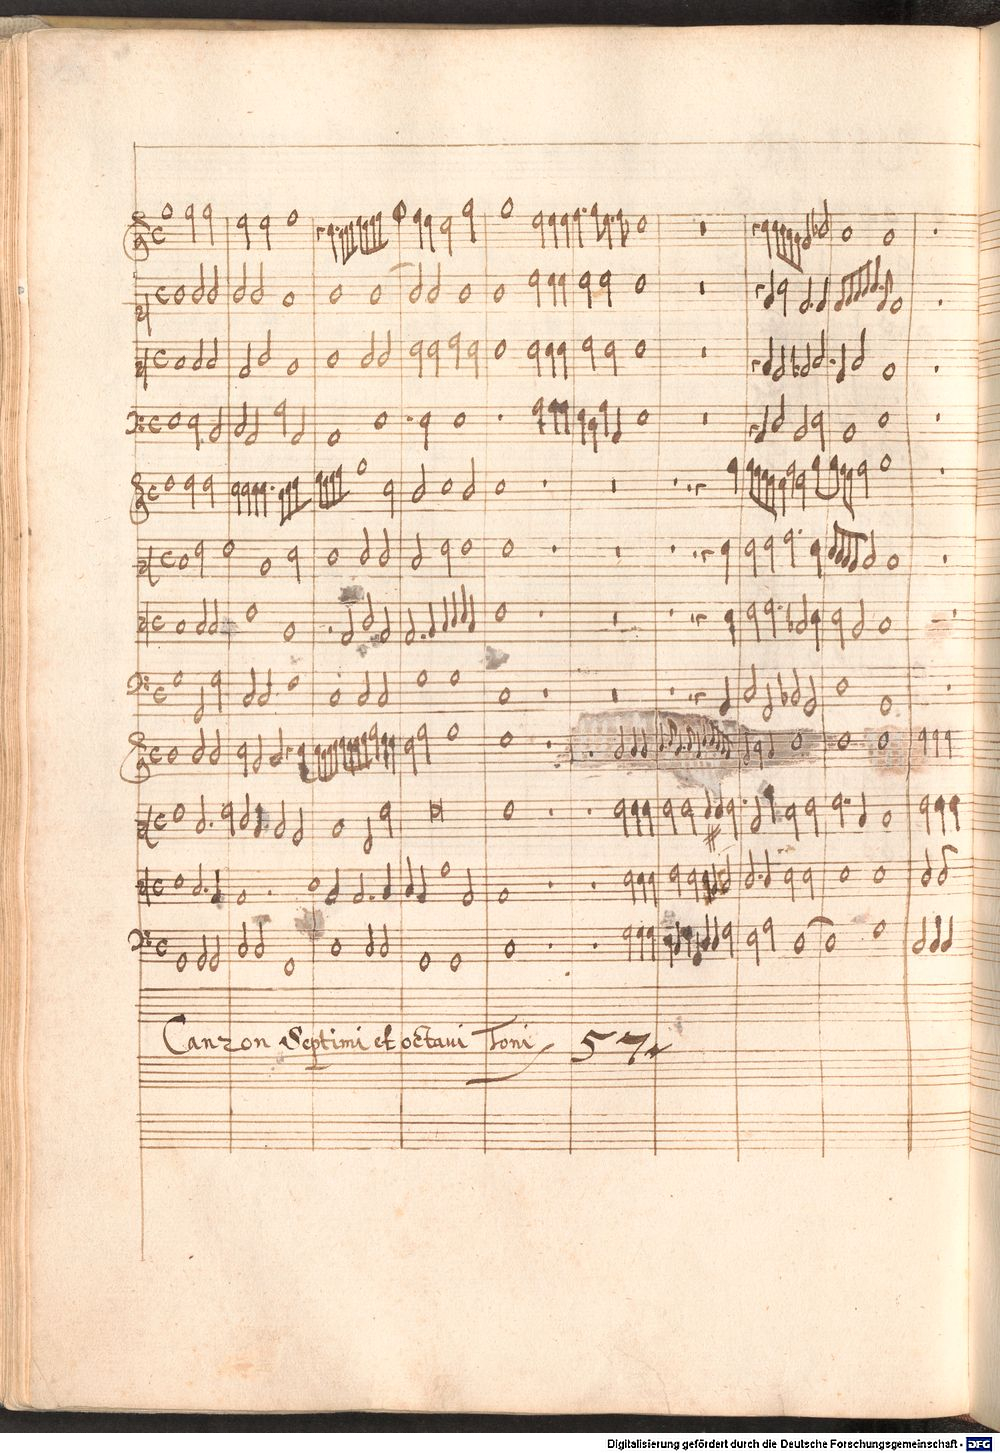 Canzon Septimi et octaui Toni 57
Digitalisierung gefördert durch die Deutsche Forschungsgemeinschaft - DFG